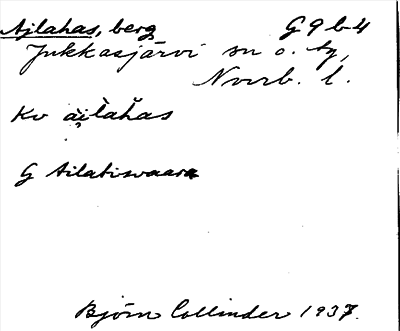 Ajlahas, berg G9b-4
Jukkasjärvi sn o. tg,
Norrb. l.
Kv ài̯làhas
G Ailativaara
Björn Collinder 1937.